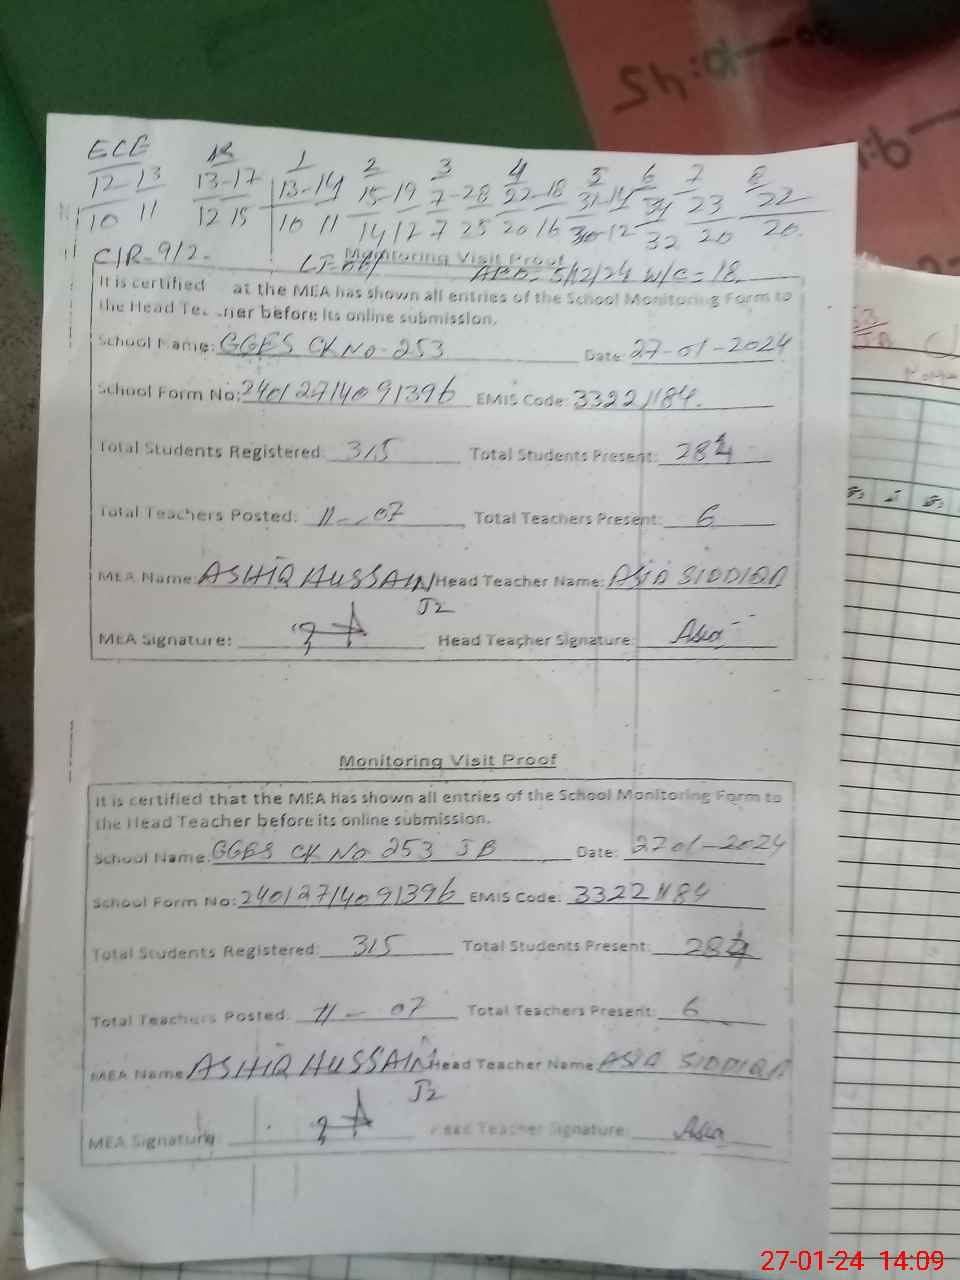 ECE 1 2 3 4 5 6 7 8
12-13 13-17 13-14 15-19 7-28 22-18 31-14 34 23 22
10 11 12 15 10 11 14 12 7 25 20 16 30-12 32 20 20.
C/R-9/2-
Monitoring Visit Proof
5/12/24 W/C=18
It is certified at the MEA has shown all entries of the School Monitoring Form to
the Head Te ner before its online submission.
School Name: GGES CK No-253 Date: 27-01-2024
School Form No: 2401271409 1396 EMIS Code: 33221184.
Total Students Registered: 315 Total Students Present: 284
Total Teachers Posted: 11-07 Total Teachers Present: 6
MEA Name: ASHIQ HUSSAIN Head Teacher Name: ASIA SIDDIQA
J2
MEA Signature: Head Teacher Signature: Asia
Monitoring Visit Proof
It is certified that the MEA has shown all entries of the School Monitoring Form to
the Head Teacher before its online submission.
School Name: GGES CK No 253 JB Date: 27 01-2024
School Form No: 2401271409 1396 EMIS Code: 33221184
Total Students Registered: 315 Total Students Present: 284
Total Teachers Posted: 11- 07 Total Teachers Present: 6
MEA Name ASHIQ HUSSAIN Head Teacher Name: ASIA SIDDIQA
J2
MEA Signature Head Teacher Signature: Asia
27-01-24 14:09